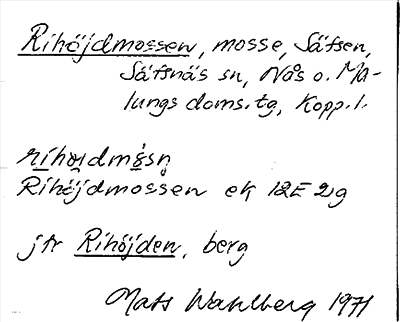 Rihöjdmossen, mosse, Säfsen,
Säfsnäs sn, Nås o. Ma-
lungs doms.tg, Kopp.l.
Rihöjdmossen ek 12E 2g
jfr Rihöjden, berg
Mats Wahlberg 1971